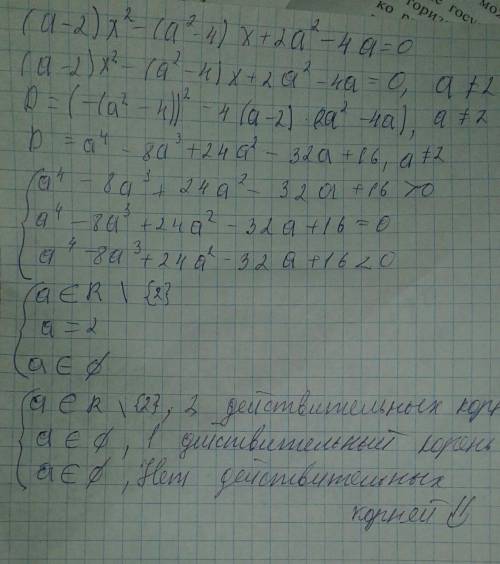 (a-2)x² - (a²-4)x + 2a² - 4a = 0
(a-2)x² - (a²-4)x + 2a² - 4a = 0, a ≠ 2
D = (-(a²-4))² - 4(a-2)·(2a²-4a), a ≠ 2
D = a⁴ - 8a³ + 24a² - 32a + 16, a ≠ 2
{ a⁴ - 8a³ + 24a² - 32a + 16 > 0
a⁴ - 8a³ + 24a² - 32a + 16 = 0
a⁴ - 8a³ + 24a² - 32a + 16 < 0
{ a ∈ R \ {2}
a = 2
a ∈ ∅
{ a ∈ R \ {2}, 2 действительных кор
a ∈ ∅, 1 действительный корень
a ∈ ∅, Нет действительных
корней